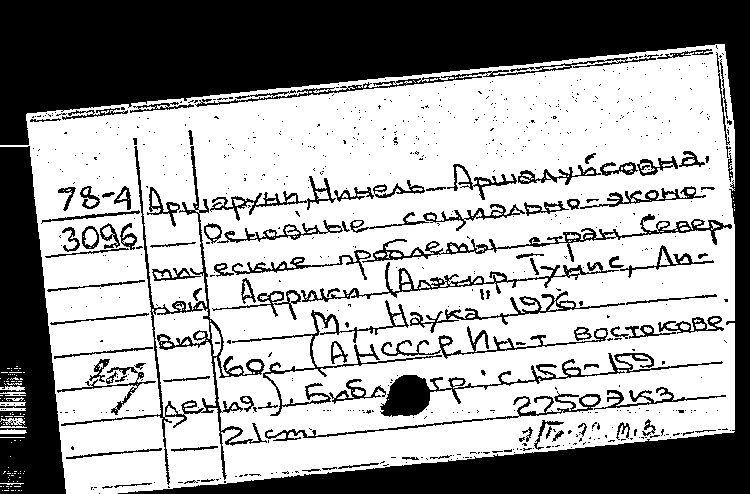 78-4 Аршаруни, Нинель Аршалуйсовна.
3096 Основные социально-эконо-
мические проблемы стран Север-
ной Африки. (Алжир, Тунис, Ли-
вия). М., „Наука", 1976.
160с. (АН СССР. Ин-т востокове-
дения.). Библ тр.: с. 156-159.
2250экз.
21cm.